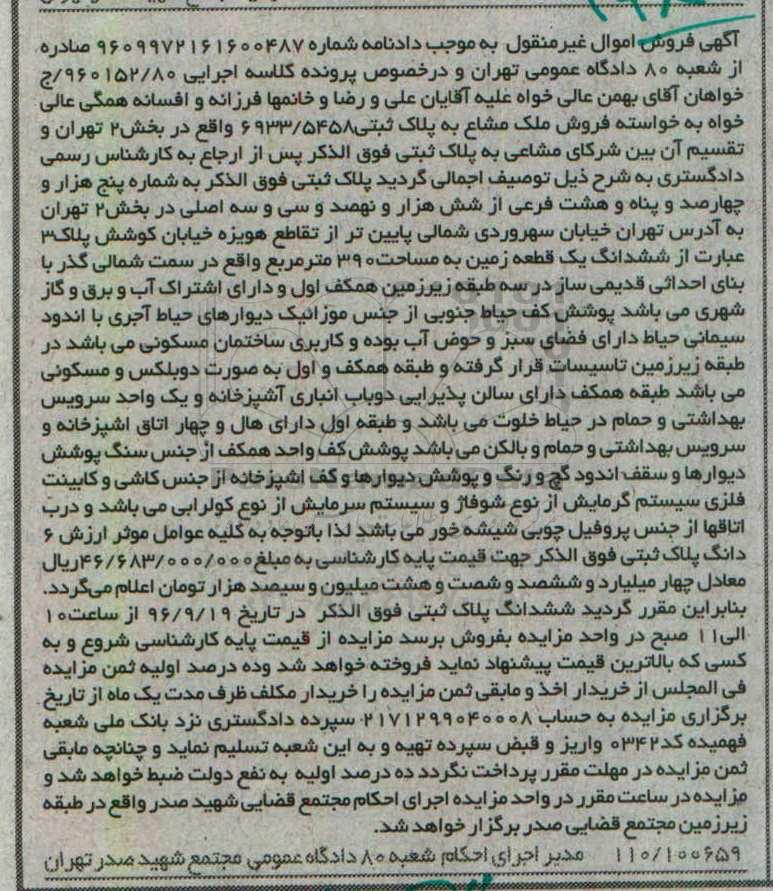 آگهی فروش اموال غیرمنقول به موجب دادنامه شماره ۹۶۰۹۹۷۲۱۶۱۶۰۰۴۸۷ صادره
از شعبه ۸۰ دادگاه عمومی تهران و درخصوص پرونده کلاسه اجرایی ۹۶۰۱۵۲/۸۰/ج
خواهان آقای بهمن عالی خواه علیه آقایان علی و رضا و خانمها فرزانه و افسانه همگی عالی
خواه به خواسته فروش ملک مشاع به پلاک ثبتی۶۹۳۳/۵۴۵۸ واقع در بخش۲ تهران و
تقسیم آن بین شرکای مشاعی به پلاک ثبتی فوق الذکر پس از ارجاع به کارشناس رسمی
دادگستری به شرح ذیل توصیف اجمالی گردید پلاک ثبتی فوق الذکر به شماره پنج هزار و
چهارصد و پناه و هشت فرعی از شش هزار و نهصد و سی و سه اصلی در بخش۲ تهران
به آدرس تهران خیابان سهروردی شمالی پایین تر از تقاطع هویزه خیابان کوشش پلاک۳
عبارت از ششدانگ یک قطعه زمین به مساحت۳۹۰ مترمربع واقع در سمت شمالی گذر با
بنای احداثی قدیمی ساز در سه طبقه زیرزمین همکف اول و دارای اشتراک آب و برق و گاز
شهری می باشد پوشش کف حیاط جنوبی از جنس موزائیک دیوارهای حیاط آجری با اندود
سیمانی حیاط دارای فضای سبز و حوض آب بوده و کاربری ساختمان مسکونی می باشد در
طبقه زیرزمین تاسیسات قرار گرفته و طبقه همکف و اول به صورت دوبلکس و مسکونی
می باشد طبقه همکف دارای سالن پذیرایی دوباب انباری آشپزخانه و یک واحد سرویس
بهداشتی و حمام در حیاط خلوت می باشد و طبقه اول دارای هال و چهار اتاق اشپزخانه و
سرویس بهداشتی و حمام و بالکن می باشد پوشش کف واحد همکف از جنس سنگ پوشش
دیوارها و سقف اندود گچ و رنگ و پوشش دیوارها و کف اشپزخانه از جنس کاشی و کابینت
فلزی سیستم گرمایش از نوع شوفاژ و سیستم سرمایش از نوع کولرابی می باشد و درب
اتاقها از جنس پروفیل چوبی شیشه خور می باشد لذا باتوجه به کلیه عوامل موثر ارزش ۶
دانگ پلاک ثبتی فوق الذکر جهت قیمت پایه کارشناسی به مبلغ۴۶/۶۸۳/۰۰۰/۰۰۰ریال
معادل چهار میلیارد و ششصد و شصت و هشت میلیون و سیصد هزار تومان اعلام می‌گردد.
بنابراین مقرر گردید ششدانگ پلاک ثبتی فوق الذکر در تاریخ ۹۶/۹/۱۹ از ساعت۱۰
الی۱۱ صبح در واحد مزایده بفروش برسد مزایده از قیمت پایه کارشناسی شروع و به
کسی که بالاترین قیمت پیشنهاد نماید فروخته خواهد شد وده درصد اولیه ثمن مزایده
فی المجلس از خریدار اخذ و مابقی ثمن مزایده را خریدار مکلف ظرف مدت یک ماه از تاریخ
برگزاری مزایده به حساب ۲۱۷۱۲۹۹۰۴۰۰۰۸ سپرده دادگستری نزد بانک ملی شعبه
فهمیده کد۰۳۴۲ واریز و قبض سپرده تهیه و به این شعبه تسلیم نماید و چنانچه مابقی
ثمن مزایده در مهلت مقرر پرداخت نگردد ده درصد اولیه به نفع دولت ضبط خواهد شد و
مزایده در ساعت مقرر در واحد مزایده اجرای احکام مجتمع قضایی شهید صدر واقع در طبقه
زیرزمین مجتمع قضایی صدر برگزار خواهد شد.
۱۱۰/۱۰۰۶۵۹ مدیر اجرای احکام شعبه ۸۰ دادگاه عمومی مجتمع شهید صدر تهران